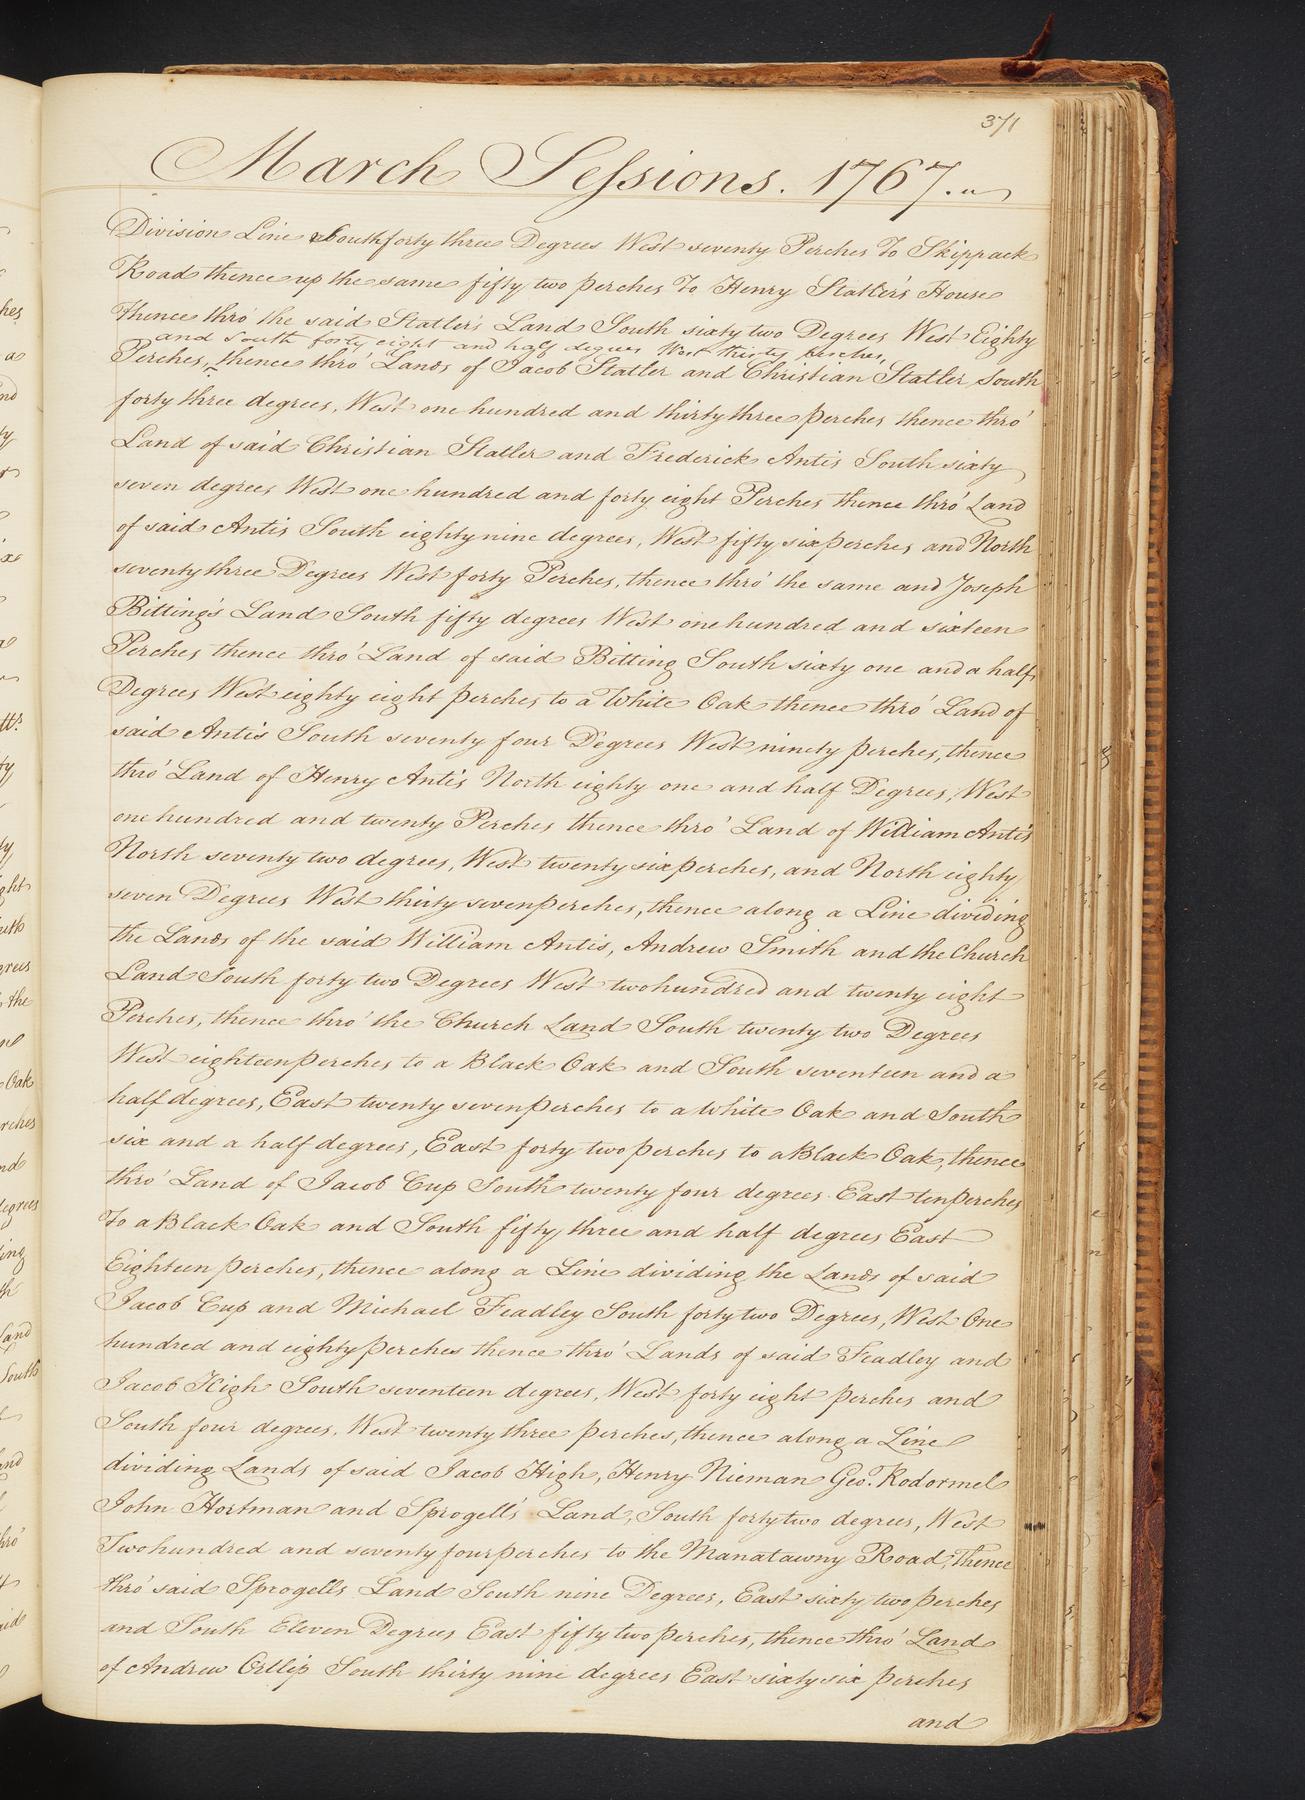 371
March Sessions. 1767.
Division Line South forty three Degrees West seventy Perches To Skippack
Road thence up the same fifty two perches To Henry Statler's House
thence thro' the said Statler's Land South sixty two Degrees West Eighty
and South forty eight and half degrees West thirty perches,
Perches, ^ thence thro' Lands of Jacob Statler and Christian Statler South
forty three degrees, West one hundred and thirty three perches thence thro'
Land of said Christian Statler and Frederick Antis South sixty
seven degrees West one hundred and forty eight Perches thence thro' Land
of said Antis South eighty nine degrees, West fifty six perches and North
seventy three Degrees West forty Perches, thence thro' the same and Joseph
Bitting's Land South fifty degrees West one hundred and sixteen
Perches thence thro' Land of said Bitting South sixty one and a half
Degrees West eighty eight perches to a White Oak thence thro' Land of
said Antis South seventy four Degrees West ninety perches, thence
thro' Land of Henry Antis North eighty one and half Degrees, West
one hundred and twenty Perches thence thro' Land of William Antis
North seventy two degrees, West twenty six perches, and North eighty
seven Degrees West thirty seven perches, thence along a Line dividing
the Lands of the said William Antis, Andrew Smith and the Church
Land South forty two Degrees West two hundred and twenty eight
Perches, thence thro' the Church Land South twenty two Degrees
West eighteen perches to a Black Oak and South seventeen and a
half degrees, East twenty seven perches to a White Oak and South
six and a half degrees, East forty two perches to a Black Oak, thence
thro' Land of Jacob Cup South twenty four degrees East ten perches
To a Black Oak and South fifty three and half degrees East
Eighteen perches, thence along a Line dividing the Lands of said
Jacob Cup and Michael Feadley South forty two Degrees, West One
hundred and eighty perches thence thro' Lands of said Feadley and
Jacob High South seventeen degrees, West forty eight perches and
South four degrees, West twenty three perches, thence along a Line
dividing Lands of said Jacob High, Henry Nieman Geo. Rodormel
John Hortman and Sprogell's Land, South forty two degrees, West
Two hundred and seventy four perches to the Manatawny Road, thence
thro' said Sprogells Land South nine Degrees, East sixty two perches
and South Eleven Degrees East fifty two perches, thence thro' Land
of Andrew Ortlip South thirty nine degrees East sixty six perches
and